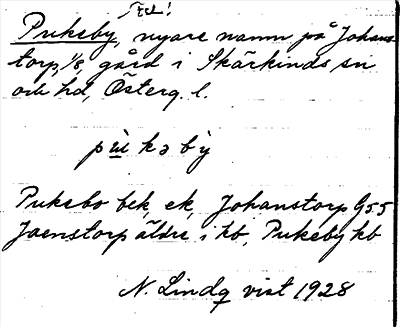 Tell!
Pukeby, nyare namn på Johans-
torp, 1/8, gård i Skärkinds sn
och hd, Österg. l.
pùkəbỳ
Pukebo bek, ek, Johanstorp G55
Jaenstorp äldre i kb, Pukeby kb
N. Lindq vist 1928